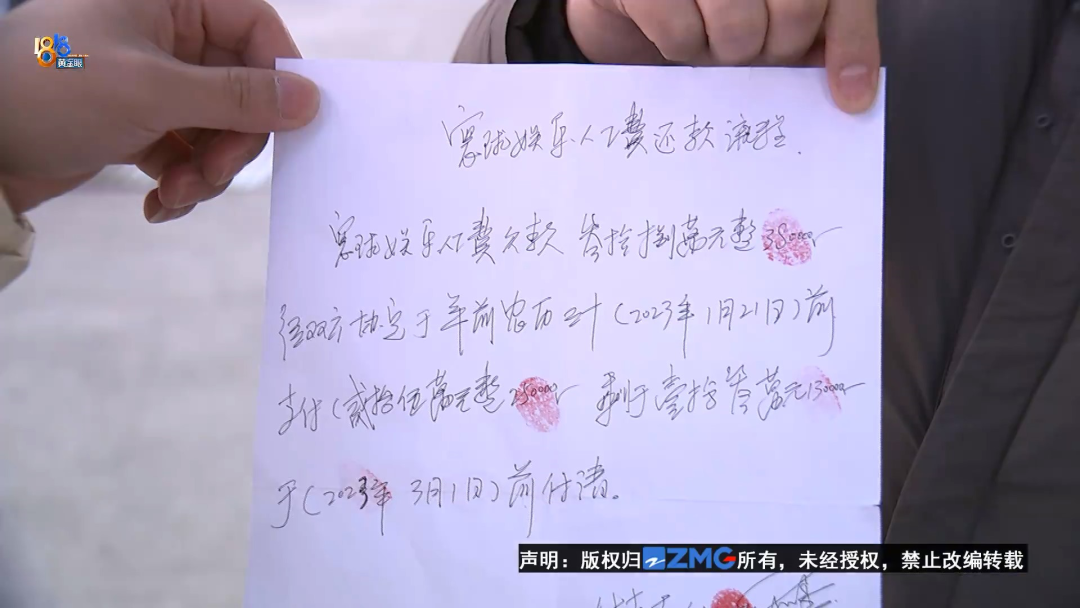 1818
黄金眼
寰球娱乐人工费还款流程.
寰球娱乐人工费欠款 叁拾捌萬元整 380000
经双方协定于年前农历三十(2023年1月21日)前
支付(贰拾伍萬元整 250000 剩于壹拾叁萬元 130000
于(2023年 3月1日)前付清。
声明：版权归ZMG所有，未经授权，禁止改编转载